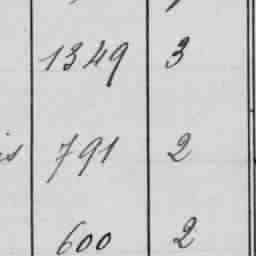 1349 3
is 791 2
600 2